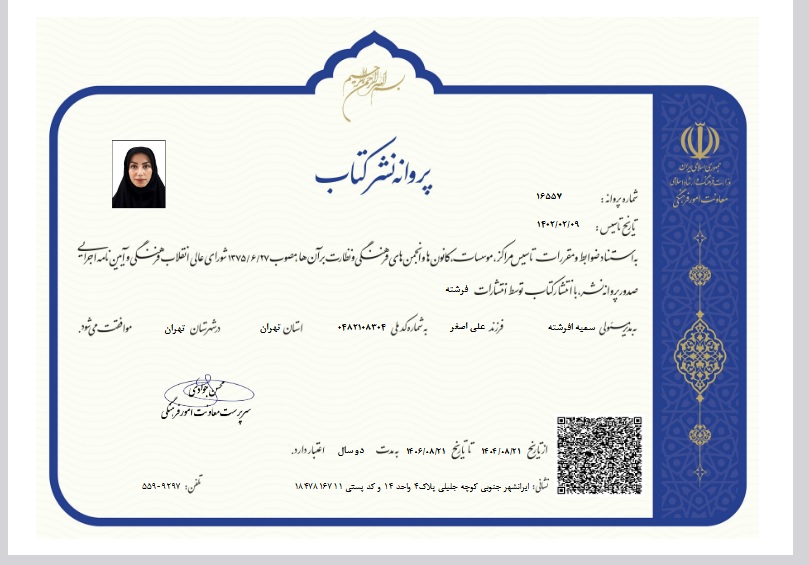 بسم الله الرحمن الرحیم
جمهوری اسلامی ایران
وزارت فرهنگ و ارشاد اسلامی
معاونت امور فرهنگی
پروانه نشر کتاب
شماره پروانه: ۱۶۵۵۷
تاریخ تاسیس: ۱۴۰۲/۰۲/۰۹
به استناد ضوابط و مقررات تاسیس مراکز، موسسات، کانون ها و انجمن های فرهنگی و نظارت بر آن ها مصوب ۱۳۷۵/۶/۲۷ شورای عالی انقلاب فرهنگی و آیین نامه اجرایی
صدور پروانه نشر، با انتشار کتاب توسط انتشارات فرشته
به مدیر مسئولی سمیه افرشته فرزند علی اصغر به شماره کد ملی ۰۴۸۲۱۰۸۳۰۴ استان تهران در شهرستان تهران موافقت می شود.
محسن جوادی
سرپرست معاونت امور فرهنگی
از تاریخ ۱۴۰۴/۰۸/۲۱ تا تاریخ ۱۴۰۶/۰۸/۲۱ به مدت دو سال اعتبار دارد.
نشانی: ایرانشهر جنوبی کوچه جلیلی پلاک۴ واحد ۱۴ و کد پستی ۱۸۴۷۸۱۶۷۱۱ تلفن: ۵۵۹-۹۲۹۷